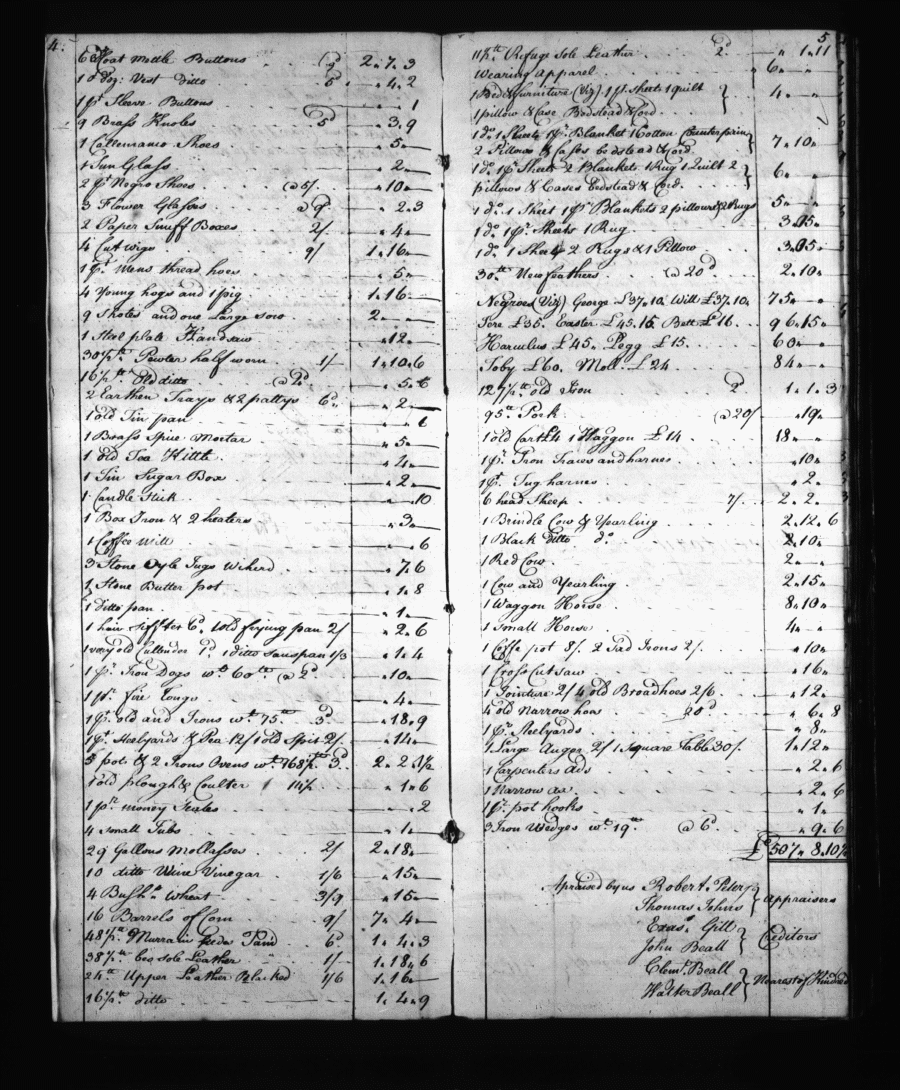 4.
63 Coat Mettle Buttons 9d 2.7.3
10 Doz: Vest ditto 5d .4.2
1 pr Sleeve Buttons . . 1
9 Brass Knobs 5d . 3.9
1 Callemanco Shoes . 5 .
1 Sun Glass . 2 .
2 pr Negro Shoes @ 5/. . 10 .
3 Flower Glasses @ 9d . 2.3
2 Paper Snuff Boxes 2/ . 4 .
4 Cut wigs 9/ 1.16 .
1 pr Mens thread hoes . 5 .
4 Young hogs and 1 pig 1.16 .
9 Shotes and one Large Sow 2 . .
1 Steel plate Handsaw . 12 .
30½ lb Pewter half worn 1/ 1.10.6
16½ lb Old ditto @ 4d . 5.6
2 Earthen Trays & 2 pattys 6d . 2 .
1 old Tin pan . . 6
1 Brass Spice Mortar . 5 .
1 old Tea Kittle . 4 .
1 Tin Sugar Box . 2 .
1 Candle Stick . . 10
1 Box Iron & 2 heaters . 3 .
1 Coffee Mill . . 6
3 Stone Oyle Jugs . 7.6
1 Stone Butter pot . 1.8
1 Ditto pan . 1 .
1 hair Siffter 6d. 1 old frying pan 2/ . 2.6
1 very old Cullender 1d. 1 ditto Sauspan 1/3 . 1.4
1 pr Iron Dogs wt. 60 lb @ 2d . 10 .
1 pr. Fire Tongs . 4 .
1 pr. old and Irons wt. 75 lb 3d . 18.9
1 pr. Steelyards & Pea 12/ 1 old Spit 2/. . 14 .
5 pots & 2 Irons Ovens wt. 168½ lb 3d. 2.2.1½
1 old plough & Coulter . 1.6
1 pr money Scales . . 2
4 Small Tubs . 1 .
29 Gallons Mollasses 2/ 2.18 .
10 ditto Wine Vinegar 1/6 . 15 .
4 Bushs. Wheat 3/9 . 15 .
16 Barrels of Corn 9/ 7.4 .
48½ lb Murrain 6d 1.4.3
38½ lb Sole Leather 1/ 1.18.6
24 lb Upper Leather Blacked 1/6 1.16 .
16½ lb ditto 1.4.9
5
11½ lb Refuge Sole Leather 2d . 1.11
Wearing Apparel 6 . .
1 Bed & furniture (Viz) 1 pr. Sheets 1 quilt
1 pillow & Case Bedstead & Cord 4 . .
1 do. 1 Sheet 1 pr. Blanket 1 Cotton Counterpain
2 Pillows & Cases bedstead & Cord 7.10 .
1 do. 1 pr. Sheets 2 Blankets 1 Rug 1 Quilt 2
pillows & Cases Bedstead & Cord. 6 . .
1 do. 1 Sheet 1 pr. Blankets 2 pillows & 2 Rugs 5 . .
1 do. 1 pr. Sheets 1 Rug 3.15 .
1 do. 1 Sheet 2 Rugs & 1 Pillow 3.05 .
30 lb New feathers @ 20d 2.10 .
Negroes (Viz) George £37.10. Will £37.10. 75 . .
Fere £35. Easter £45.15 Bett £16 96.15 .
Harculus £45. Pegg £15. 60 . .
Toby £60. Moll. £24 84 . .
127½ lb old Iron 2d 1.1.3
95 lb Pork @ 20/ . 19 .
1 old Cart £4 1 Waggon £14 18 . .
1 pr. Iron Traws and harnes . 10 .
1 pr. Tug harnes . 2 .
6 head Sheep 7/. 2.2.
1 Brindle Cow & Yearling 2.12.6
1 Black ditto do. 2.10 .
1 Red Cow 2 . .
1 Cow and Yearling 2.15 .
1 Waggon Horse 8.10 .
1 Small Horse 4 . .
1 Coffe pot 8/. 2 Sad Irons 2/. . 10 .
1 Cross Cut Saw . 16 .
1 Jointure 2/ 4 old Broad hoes 2/6 . 12 .
4 old Narrow hoes 20d . 6.8
1 pr. Steelyards . 8 .
1 Large Auger 2/ 1 Square Table 30/. 1.12 .
1 Carpenters Ads . 2.6
1 Narrow ax . 2.6
1 pr. pot hooks . 1 .
3 Iron Wedges wt. 19 lb @ 6d . 9.6
£507.8.10½
Apraised by us Robert Peter
Thomas Johns } Appraisers
Exas. Gitt
John Beall } Creditors
Clemt. Beall
Walter Beall } Nearest of Kindred